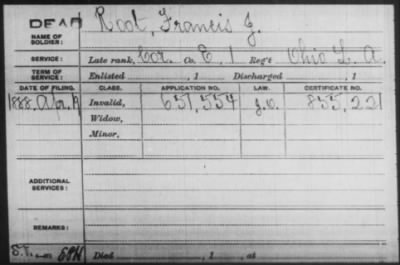 DEAD
NAME OF SOLDIER: Root, Francis J.
SERVICE: Late rank, Cor. Co. E, 1 Reg't Ohio L. A.
TERM OF SERVICE: Enlisted , 1 Discharged , 1
DATE OF FILING. CLASS. APPLICATION NO. LAW. CERTIFICATE NO.
1888, Apr. Invalid, 651,554 855,221
Widow,
Minor,
ADDITIONAL SERVICES:
REMARKS:
Died , 1 , at